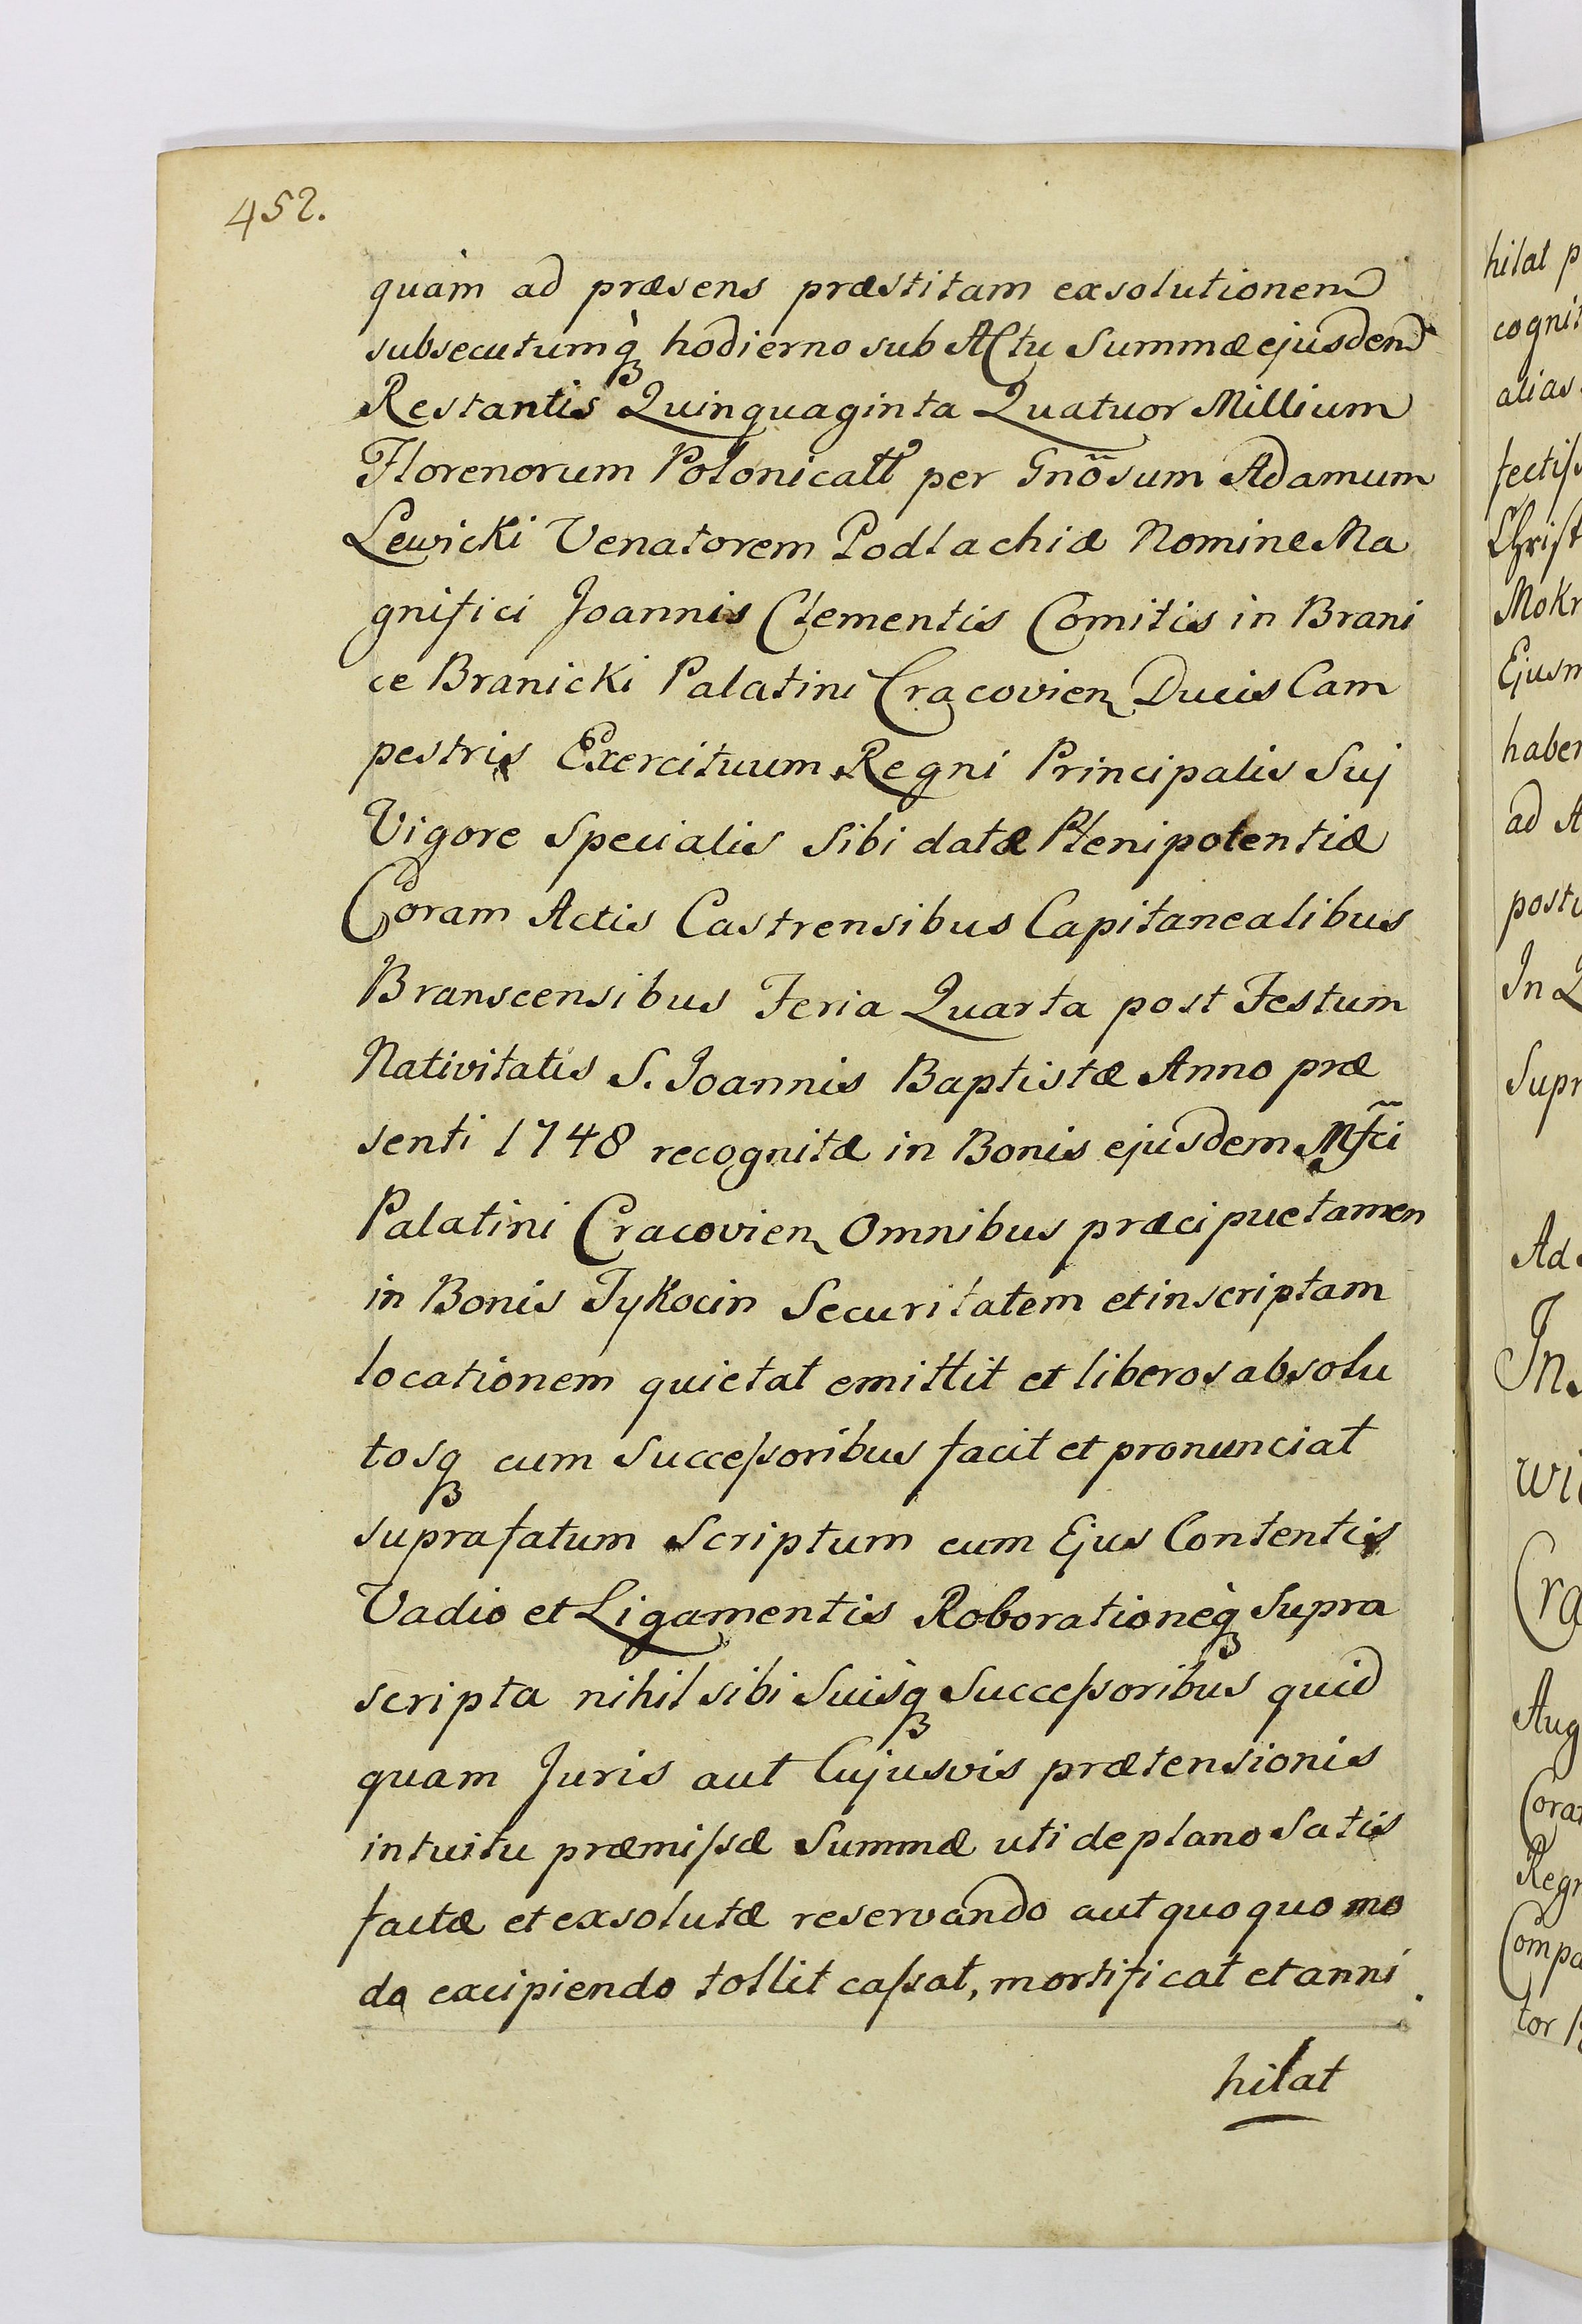 452.
quàm ad præsens præstitam exsolutionem
subsecutumq̀ hodierno sub Actu Summæ ejusdem
Restantis Quinquaginta Quatuor Millium
Florenorum Polonicall per Gnõsum Adamum
Lewicki Venatorem Podlachiæ Nomine Ma
gnifici Joannis Clementis Comitis in Brani
ce Branicki Palatini Cracovien Ducis Cam
pestris Exercituum Regni Principalis Sui
Vigore Specialis Sibi datæ Plenipotentiæ
Coram Actis Castrensibus Capitanealibus
Branscensibus Feria Quarta post Festum
Nativitatis S. Joannis Baptistæ Anno præ
senti 1748 recognitæ in Bonis ejusdem Mfc̃i
Palatini Cracovien Omnibus præcipue tamen
in Bonis Tykocin Securitatem et inscriptam
locationem quietat emittit et liberos absolu
tosq cum Succeſsoribus facit et pronunciat
suprafatum Scriptum cum Ejus Contentis
Vadio et Ligamentis Roborationeq̀ Supra
scripta nihil sibi Suisq̀ Succeſsoribus quid
quam Juris aut Cujusvis prætensionis
intuitu præmiſsæ Summæ uti de plano Satis
factæ et exsolutæ reservando aut quoquo mo
do excipiendo tollit caſsat, mortificat et anni
hilat
hilat p
cogni
alias
fectiſs
Christ
Mokr
Ejusm
haben
ad A
postu
In Q
Supr
Ad
In
wi
Cra
Aug
Cora
Regn
Compa
tor